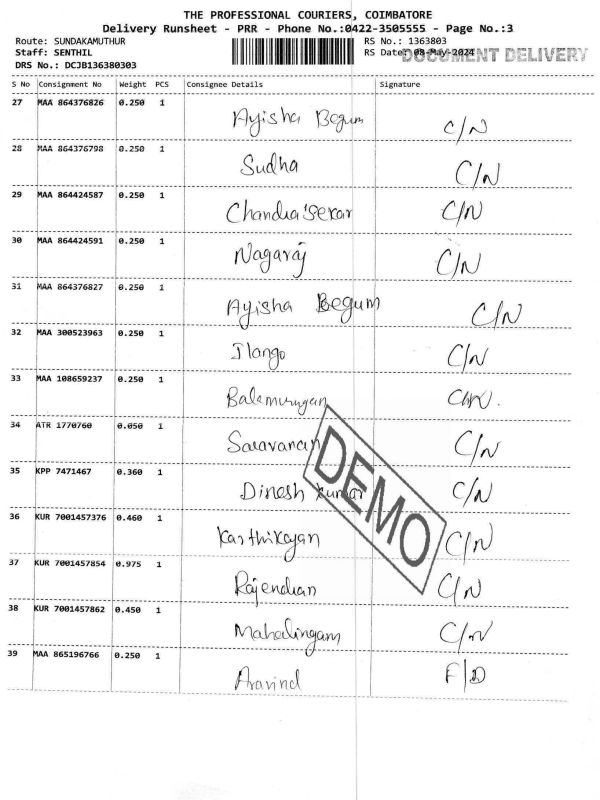 THE PROFESSIONAL COURIERS, COIMBATORE
Delivery Runsheet - PRR - Phone No.:0422-3505555 - Page No.:3
Route: SUNDAKAMUTHUR RS No.: 1363803
Staff: SENTHIL RS Date: 08-May-2024 DOCUMENT DELIVERY
DRS No.: DCJB136380303
S No Consignment No Weight PCS Consignee Details Signature
27 MAA 864376826 0.250 1 Ayisha Begum C/N
28 MAA 864376798 0.250 1 Sudha C/N
29 MAA 864424587 0.250 1 Chandra sekar C/N
30 MAA 864424591 0.250 1 Nagaraj C/N
31 MAA 864376827 0.250 1 Ayisha Begum C/N
32 MAA 300523963 0.250 1 Ilango C/N
33 MAA 108659237 0.250 1 Balamurugan C/N.
34 ATR 1770760 0.050 1 Saravanan C/N
35 KPP 7471467 0.360 1 Dinesh kumar C/N
36 KUR 7001457376 0.460 1 Karthikeyan C/N
37 KUR 7001457854 0.975 1 Rajendran C/N
38 KUR 7001457862 0.450 1 Mahalingam C/N
39 MAA 865196766 0.250 1 Aravind F/D
DEMO